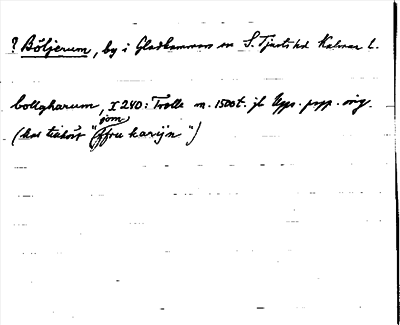 ? Böljerum, by i Gladhammars sn S. Tjusts hd Kalmar l.
bollgharum, I 240: Trolle m. 1500t. jb Upps. papp. orig.
som
(har tillhört "ffru karijn")